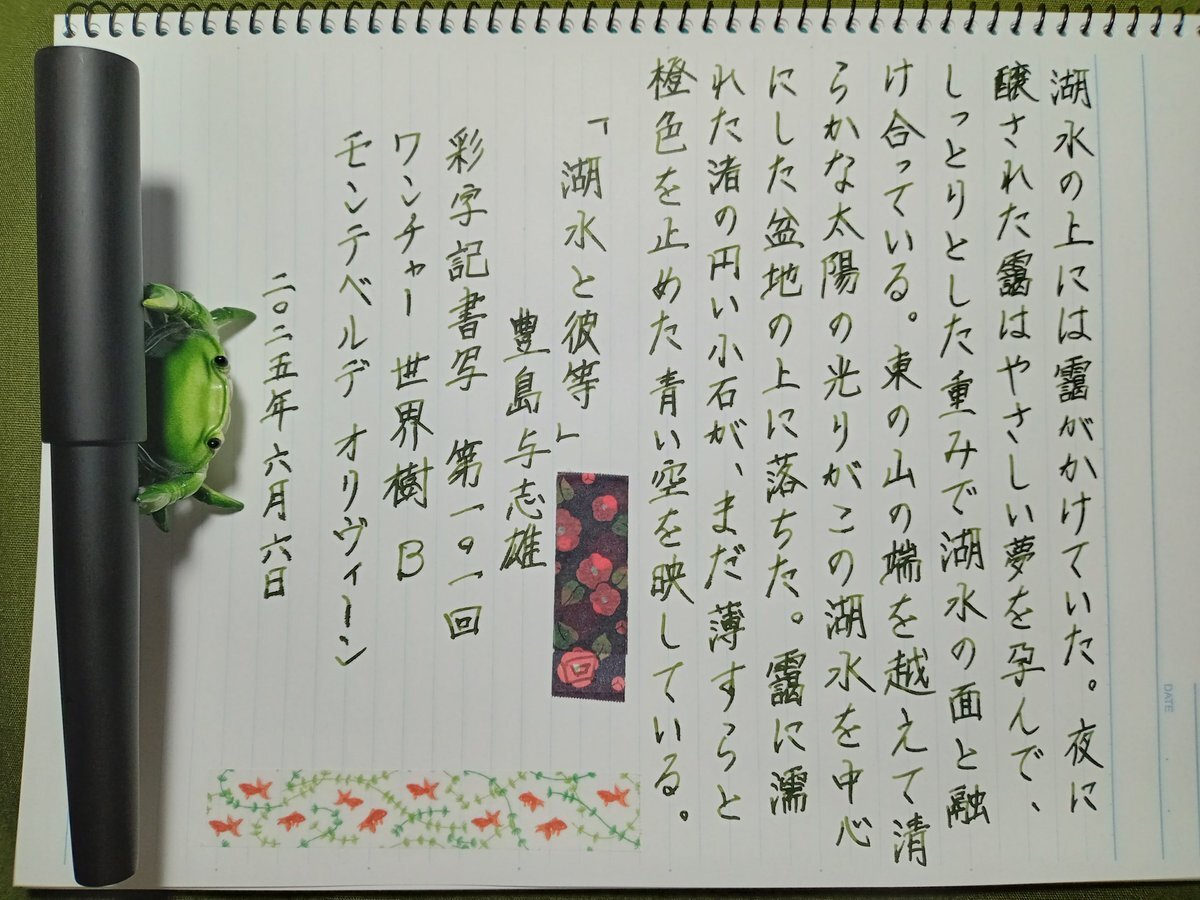 湖水の上には靄がかけていた。夜に
醸された靄はやさしい夢を孕んで、
しっとりとした重みで湖水の面と融
け合っている。東の山の端を越えて清
らかな太陽の光りがこの湖水を中心
にした盆地の上に落ちた。靄に濡
れた渚の円い小石が、まだ薄すらと
橙色を止めた青い空を映している。
「湖水と彼等」
豊島与志雄
彩字記書写 第一九一回
ワンチャー 世界樹 B
モンテベルデ オリヴィーン
二〇二五年六月六日
DATE